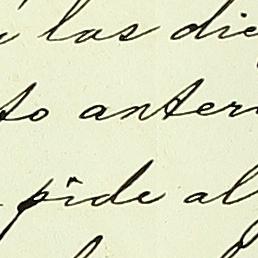 las die
to anteri
pide al